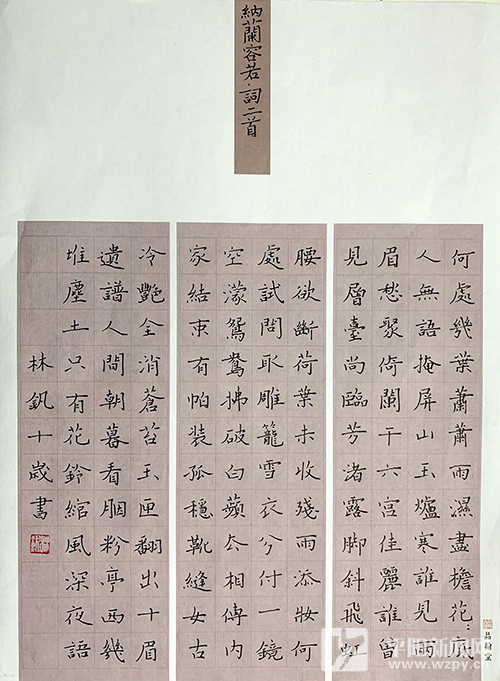 納蘭容若詞二首
何處幾葉蕭蕭雨濕盡檐花:底
人無語掩屏山玉爐寒誰見兩
眉愁聚倚闌干六宮佳麗誰曾
見層臺尚臨芳渚露腳斜飛虹
腰欲斷荷葉未收殘雨添妝何
處試問取雕籠雪衣分付一鏡
空濛鴛鴦拂破白蘋去相傳內
家結束有帕裝孤穩靴縫女古
冷艷全消蒼苔玉匣翻出十眉
遺譜人間朝暮看胭粉亭西幾
堆塵土只有花鈴綰風深夜語
林釩十歲書
平阳新闻网
wzpy.com